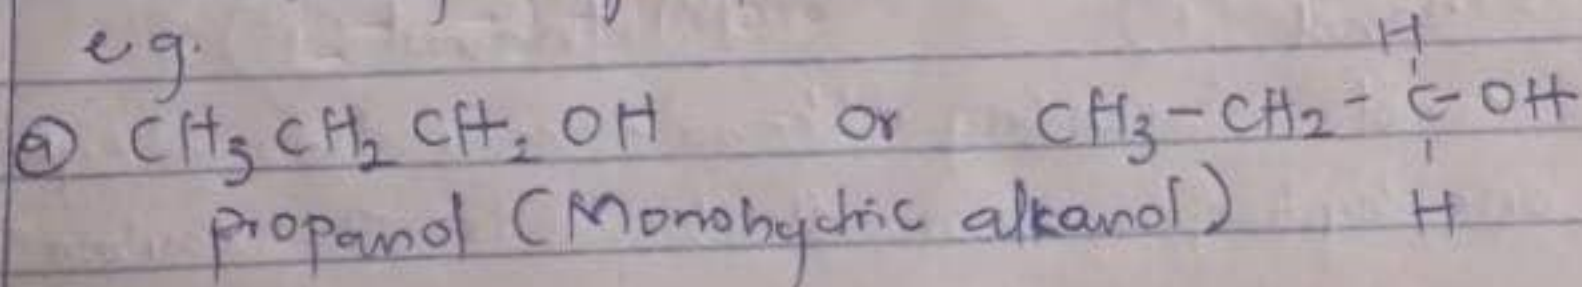 eg.
H
(a) CH₃ CH₂ CH₂ OH or CH₃-CH₂-C-OH
propanol (Monohydric alkanol) H